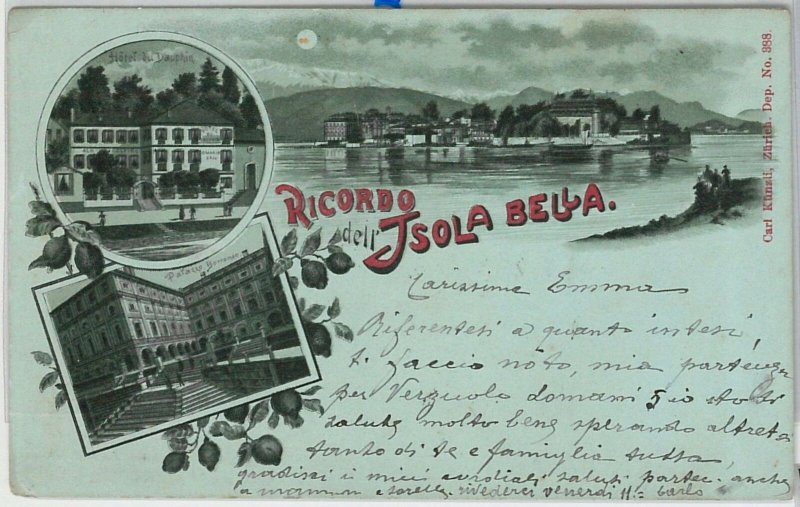 Hôtel du Dauphin
RICORDO
dell'ISOLA BELLA.
Palazzo Borromeo
Carl Künzli, Zürich. Dep. No. 388.
Carissima Emma
Riferentesi a quanto intesi,
ti faccio noto, mia partenza
per Verzuolo domani 5 io sto di
salute molto bene sperando altret
tanto di te e famiglia tutta,
gradisci i miei cordiali saluti partec. anche
a mamma e sorelle. rivederci venerdì 11 = Carlo